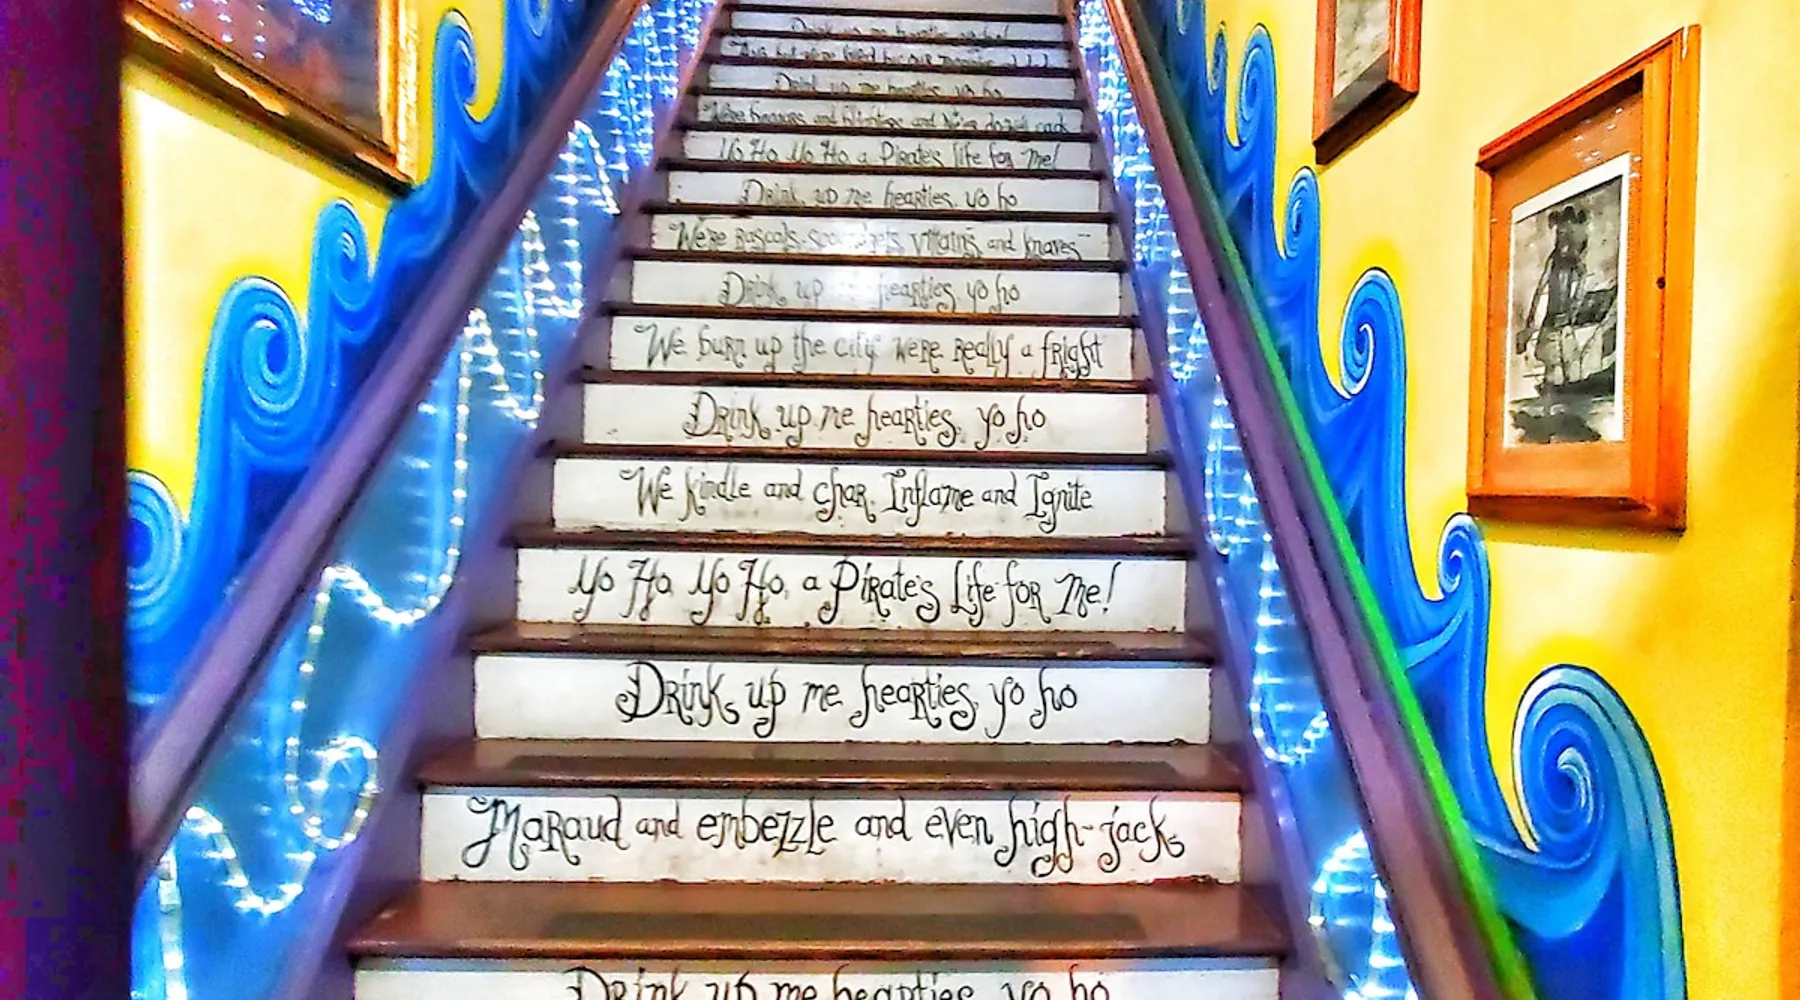 Drink up me hearties, yo ho!
Drink up me hearties, yo ho
We're beggars and blighters and Ne'er do well cads
Yo Ho Yo Ho a Pirate's life for me!
Drink, up me hearties, yo ho
"We're Rascals and villains, and knaves"
Drink up hearties, yo ho
We burn up the city were Really a fright
Drink up me hearties, yo ho
We kindle and char, Inflame and Ignite
Yo Ho Yo Ho, a Pirate's Life for Me!
Drink up me hearties, yo ho
Maraud and embezzle and even high-jack
Drink up me hearties, yo ho